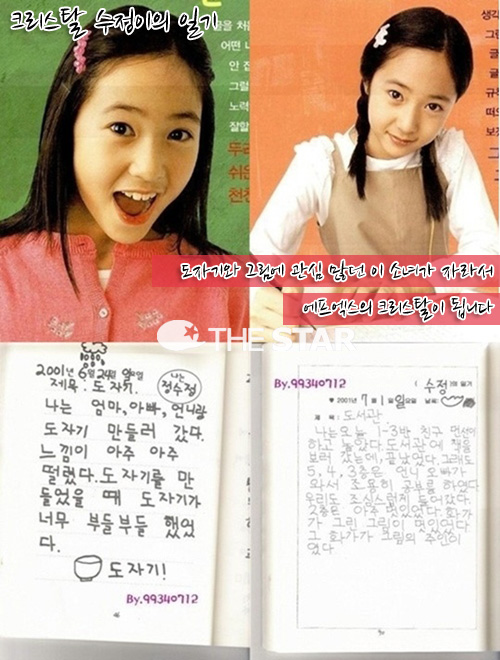 크리스탈 수정이의 일기
을 처음
어떤
안 집
노력
잘할
쉬운
생각
도자기와 그림에 관심 많던 이 소녀가 자라서
에프엑스의 크리스탈이 됩니다
THE STAR
2001년 6월 24일 일요일
제목: 도자기.
나는 정수정
나는 엄마,아빠,언니랑
도자기 만들러 갔다.
느낌이 아주 아주
떨렸다.도자기를 만
들었을 때 도자기가
너무 부들부들 했었
다.
도자기!
By.99340712
46
By.99340712
(수정)의 일기
♥ 2001년 7월 1일 일요일 날씨:
제 목: 도서관
나는 오늘 1-3반 친구 민선이
하고 놀았다.도서관에 책을
보러 갔는데, 끝났었다.그래도
5, 4, 3층은 언니 오빠가
와서 조용히 공부를 하였다
우리도 조심스럽게 들어갔다.
2층은 아주 멋있었다.화가
가 그린 그림이 멋있었다
그 화가가 그림의 주인이
었다.